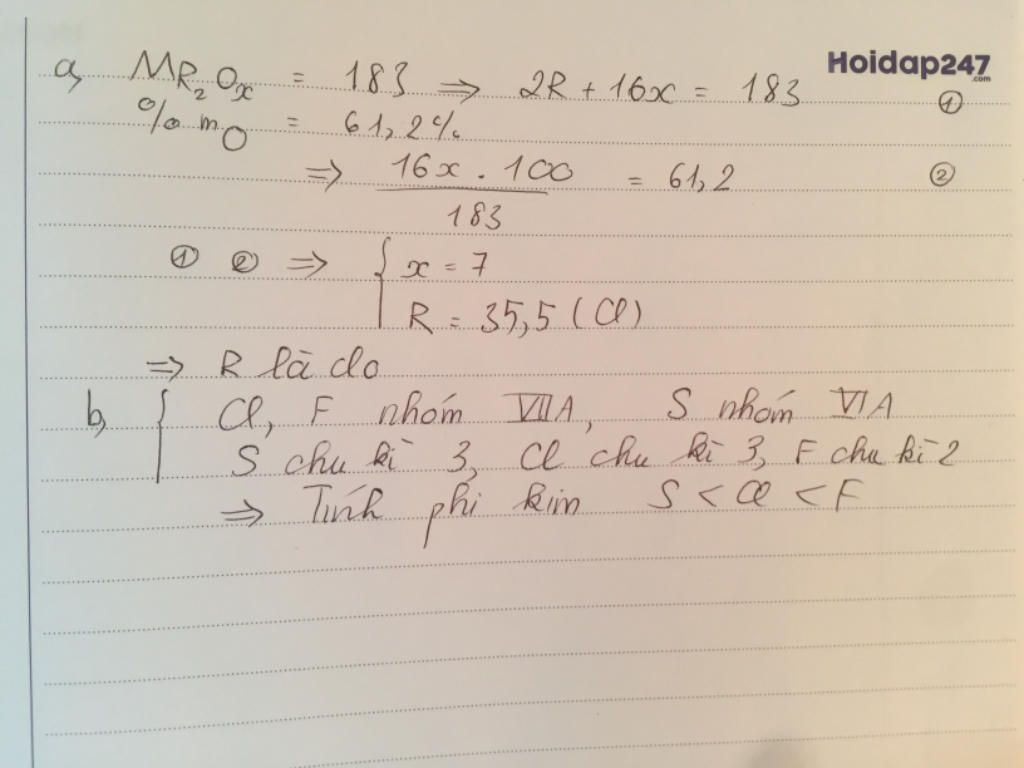 Hoidap247
.com
a, MR₂Oₓ = 183 => 2R + 16x = 183 ①
% mO = 61,2%
=> 16x . 100 / 183 = 61,2 ②
① ② => { x = 7
R = 35,5 (Cl)
=> R là clo
b, { Cl, F nhóm VIIA, S nhóm VIA
S chu kì 3, Cl chu kì 3, F chu kì 2
=> Tính phi kim S < Cl < F